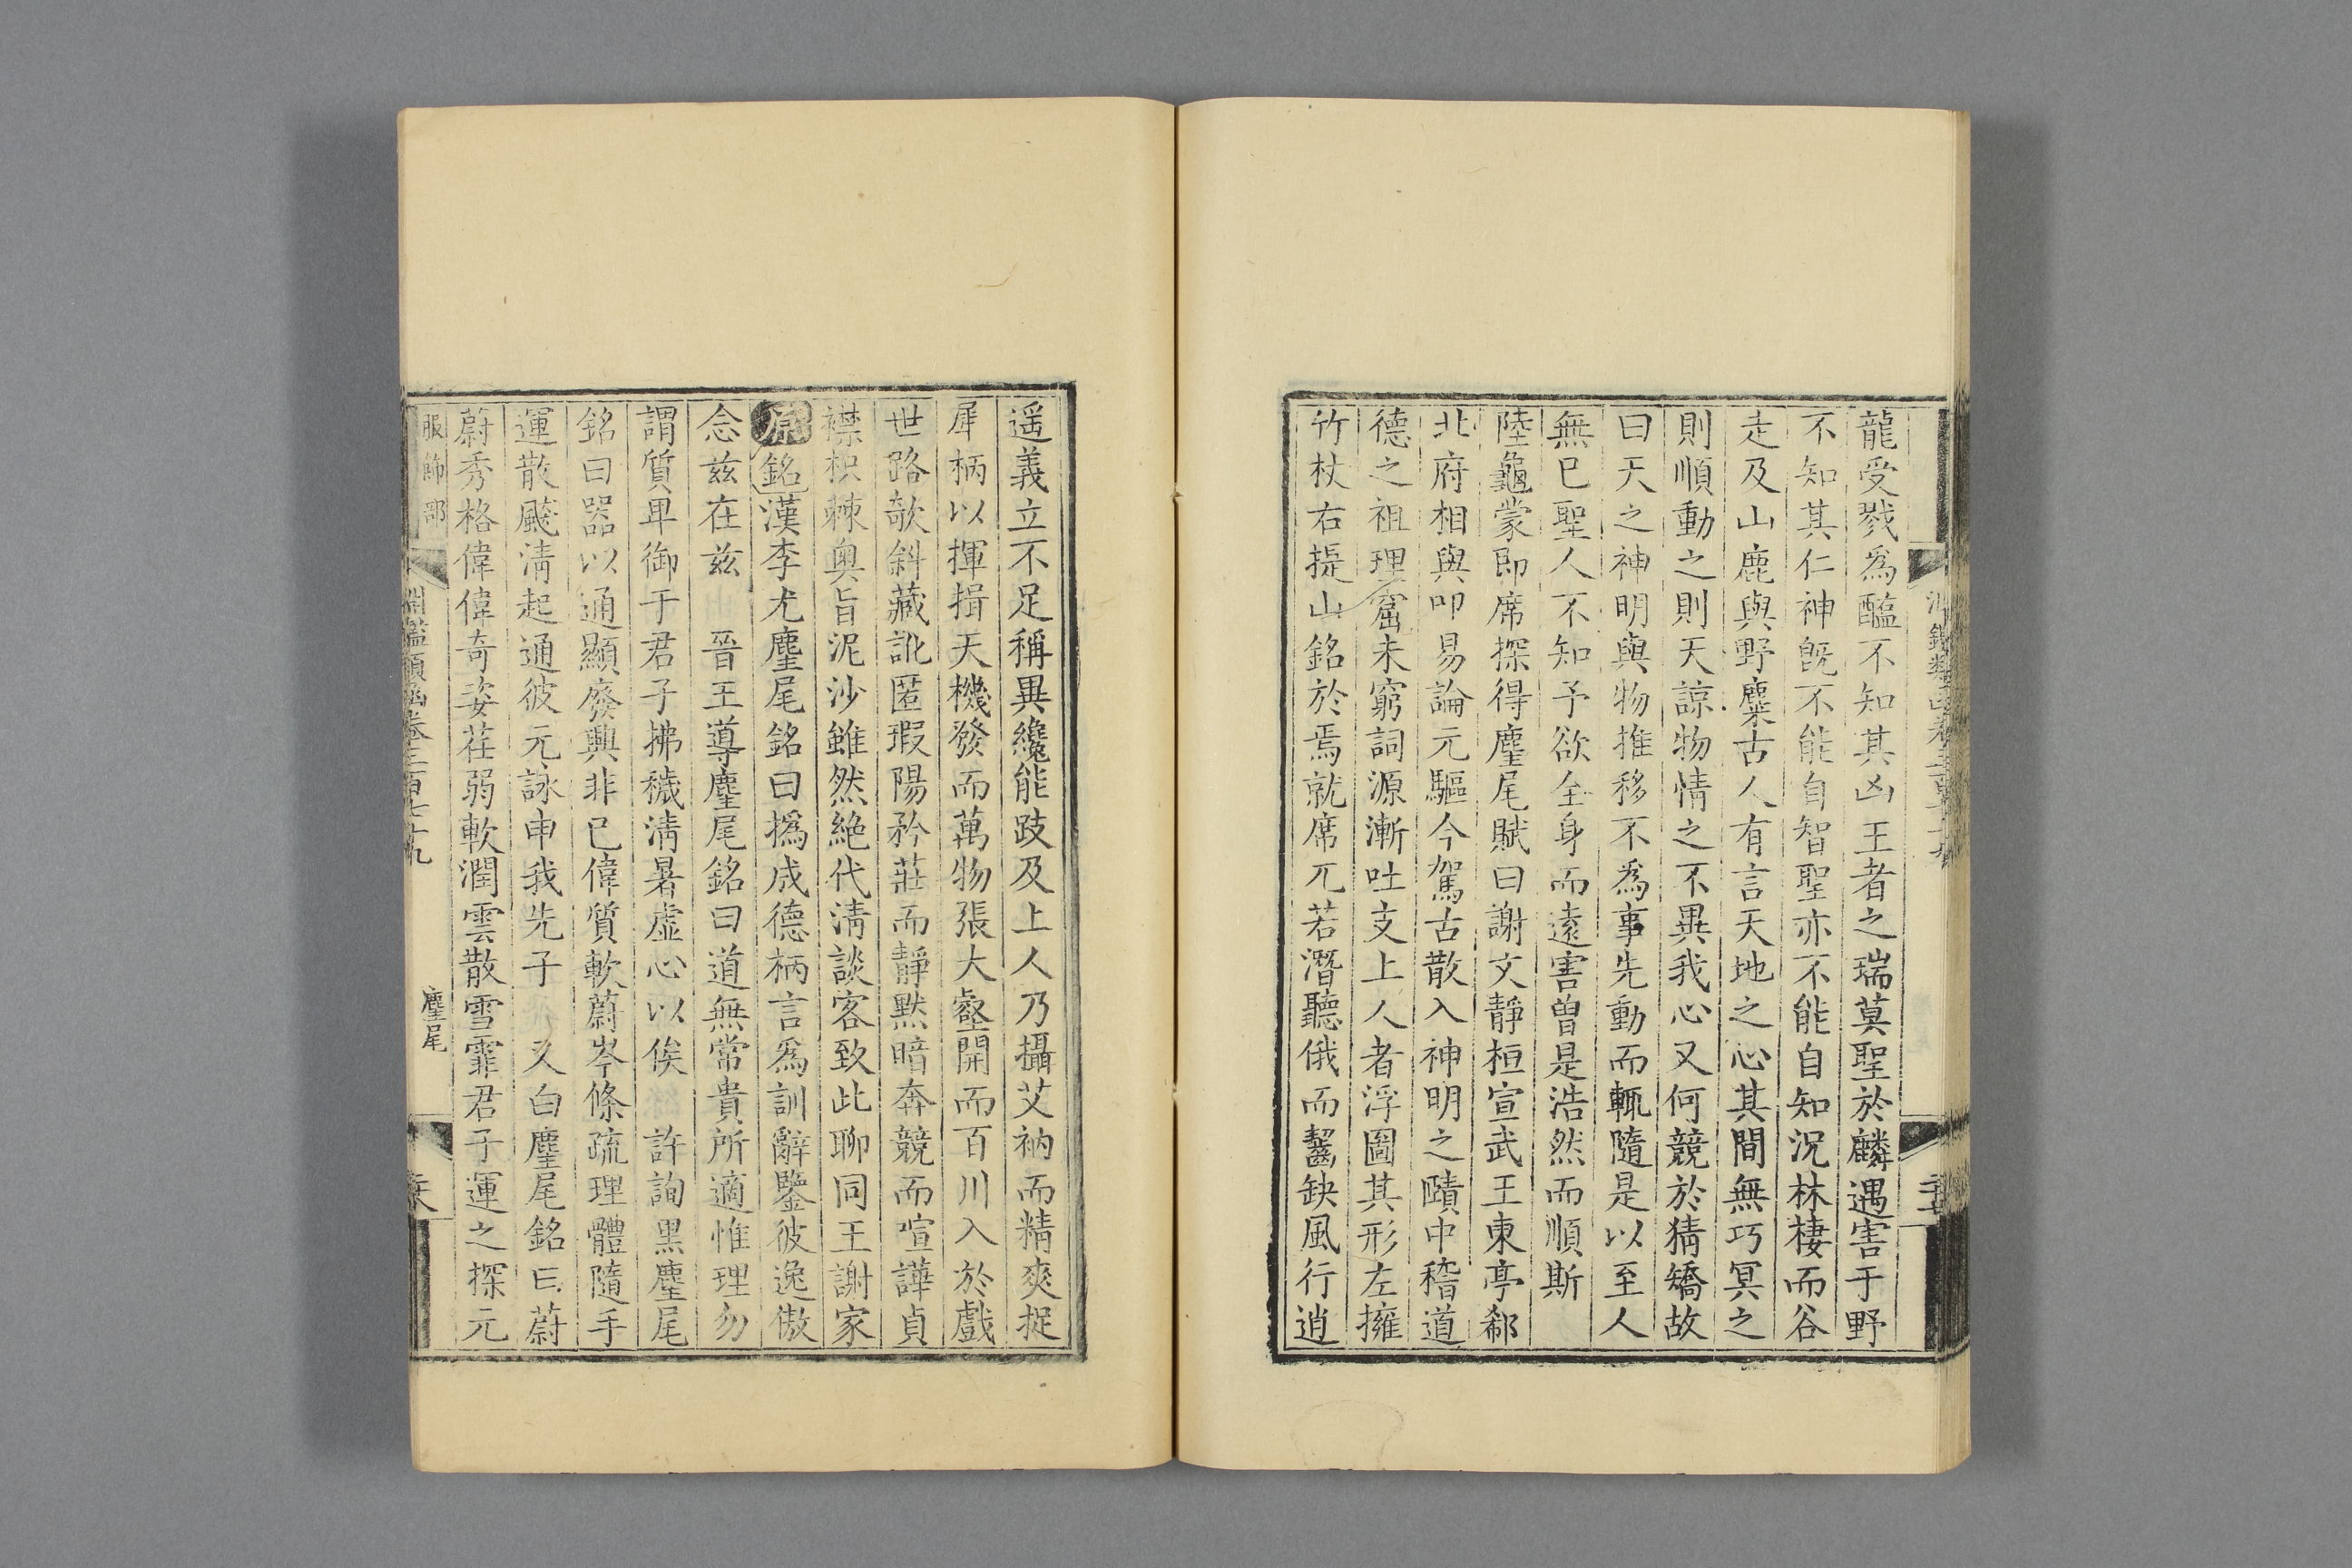 龍受戮爲醢不知其凶王者之瑞莫聖於麟遇害于野
不知其仁神旣不能自智聖亦不能自知况林棲而谷
走及山鹿與野麋古人有言天地之心其間無巧冥之
則順動之則天諒物情之不異我心又何競於猜矯故
曰天之神明與物推移不爲事先動而輒隨是以至人
無已聖人不知予欲全身而遠害曽是浩然而順斯
陸龜蒙即席探得麈尾賦曰謝文靜桓宣武王東亭郗
北府相與叩易論元驅今駕古散入神明之賾中稽道
德之祖理窟未窮詞源漸吐支上人者浮圖其形左擁
竹杖右提山銘於焉就席兀若潛聽俄而齧缺風行逍
遥義立不足稱異纔能跂及上人乃攝艾衲而精爽捉
犀柄以揮揖天機發而萬物張大壑開而百川入於戲
世路欹斜藏訛匿瑕陽矜莊而靜默暗奔競而喧譁貞
襟枳棘奧旨泥沙雖然絶代清談客致此聊同王謝家
原銘漢李尤麈尾銘曰撝成德柄言爲訓辭鑒彼逸傲
念兹在兹 晉王導麈尾銘曰道無常貴所適惟理勿
謂質卑御于君子拂穢清暑虚心以俟 許詢黑麈尾
銘曰器以通顯廢興非已偉質軟蔚岑條疏理體隨手
運散飇清起通彼元詠申我先子 又白麈尾銘曰蔚
蔚秀格偉偉奇姿荏弱軟潤雲散雪霏君子運之探元
服飾部 淵鑑類函卷三百七十九 麈尾